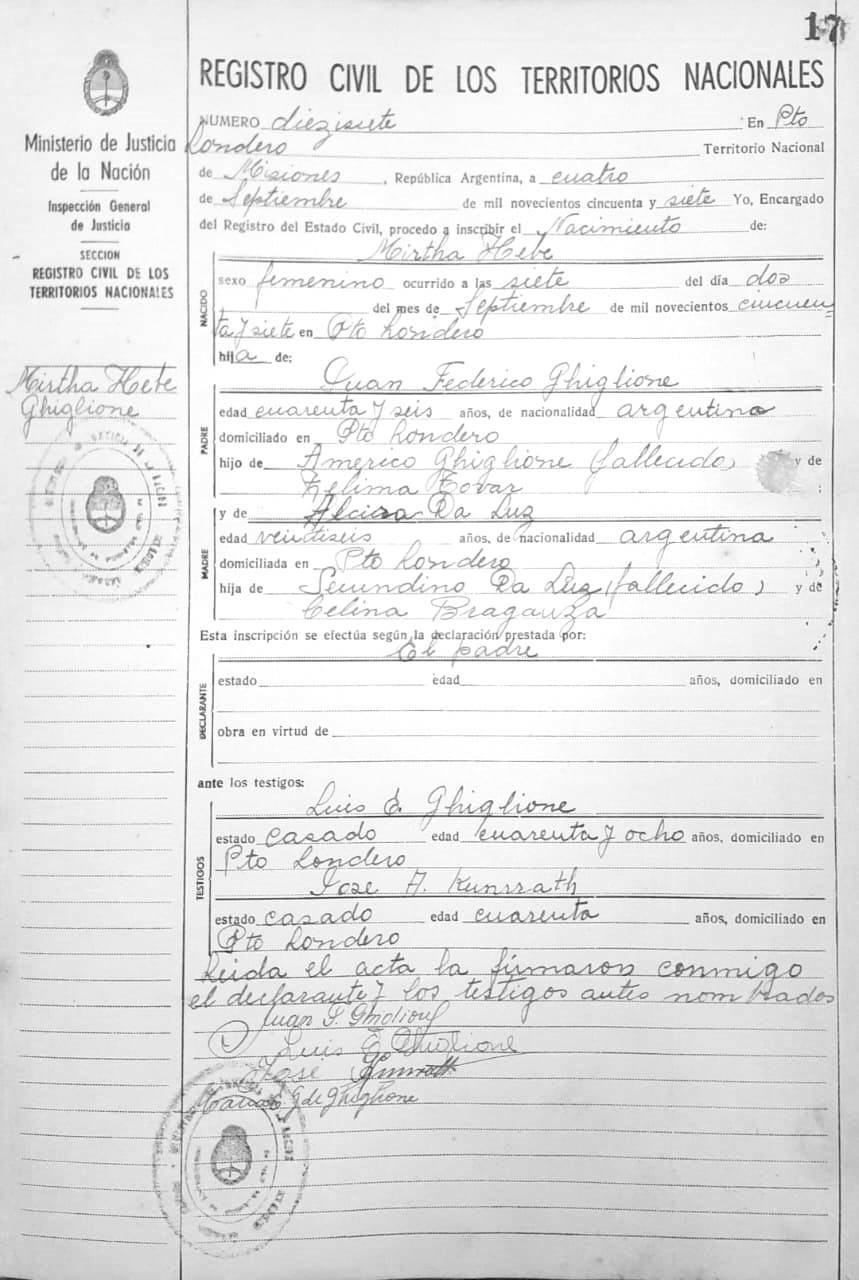 17
REGISTRO CIVIL DE LOS TERRITORIOS NACIONALES
Ministerio de Justicia
de la Nación
Inspección General
de Justicia
SECCION
REGISTRO CIVIL DE LOS
TERRITORIOS NACIONALES
Mirtha Hebe
Ghiglione
NUMERO diezisiete En Pto
Londero Territorio Nacional
de Misiones, República Argentina, a cuatro
de Septiembre de mil novecientos cincuenta y siete Yo, Encargado
del Registro del Estado Civil, procedo a inscribir el Nacimiento de:
Mirtha Hebe
NACIDO
sexo femenino ocurrido a las siete del día dos
del mes de Septiembre de mil novecientos cincuen
ta y siete en Pto Londero
hija de:
Juan Federico Ghiglione
PADRE
edad cuarenta y seis años, de nacionalidad argentina
domiciliado en Pto Londero
hijo de Americo Ghiglione (fallecido) y de
Zelima Tovar ;
MADRE
y de Alcira Da Luz
edad veintiseis años, de nacionalidad argentina
domiciliada en Pto Londero
hija de Secundino Da Luz (fallecido) y de
Celina Braganza
Esta inscripción se efectúa según la declaración prestada por:
El padre
DECLARANTE
estado edad años, domiciliado en
obra en virtud de
ante los testigos:
TESTIGOS
Luis E. Ghiglione
estado casado edad cuarenta y ocho años, domiciliado en
Pto Londero
Jose A. Kunrrath
estado casado edad cuarenta años, domiciliado en
Pto Londero
Leida el acta la firmaron conmigo
el declarante y los testigos antes nombrados
Juan F.
Luis E Ghiglione
Jose
G de Ghiglione